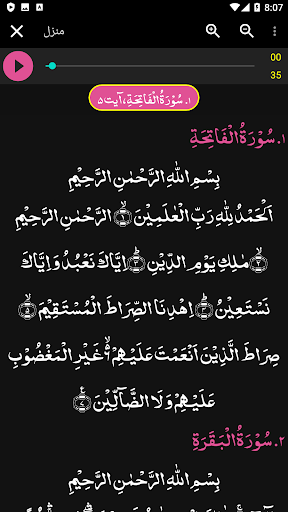 8:07
منزل
00
35
۱. سُوْرَةُ الْفَاتِحَةِ، آیت ۵
۱. سُوْرَةُ الْفَاتِحَةِ
بِسْمِ اللّٰهِ الرَّحْمٰنِ الرَّحِيْمِ
اَلْحَمْدُ لِلّٰهِ رَبِّ الْعٰلَمِيْنَ ۙ﴿۱﴾ الرَّحْمٰنِ الرَّحِيْمِ
ۙ﴿۲﴾ مٰلِكِ يَوْمِ الدِّيْنِ ؕ﴿۳﴾ اِيَّاكَ نَعْبُدُ وَ اِيَّاكَ
نَسْتَعِيْنُ ؕ﴿۴﴾ اِهْدِنَا الصِّرَاطَ الْمُسْتَقِيْمَ ۙ﴿۵﴾
صِرَاطَ الَّذِيْنَ اَنْعَمْتَ عَلَيْهِمْ ۙ﴿۶﴾ غَيْرِ الْمَغْضُوْبِ
عَلَيْهِمْ وَلَا الضَّآلِّيْنَ ﴿۷﴾
۲. سُوْرَةُ الْبَقَرَةِ
بِسْمِ اللّٰهِ الرَّحْمٰنِ الرَّحِيْمِ